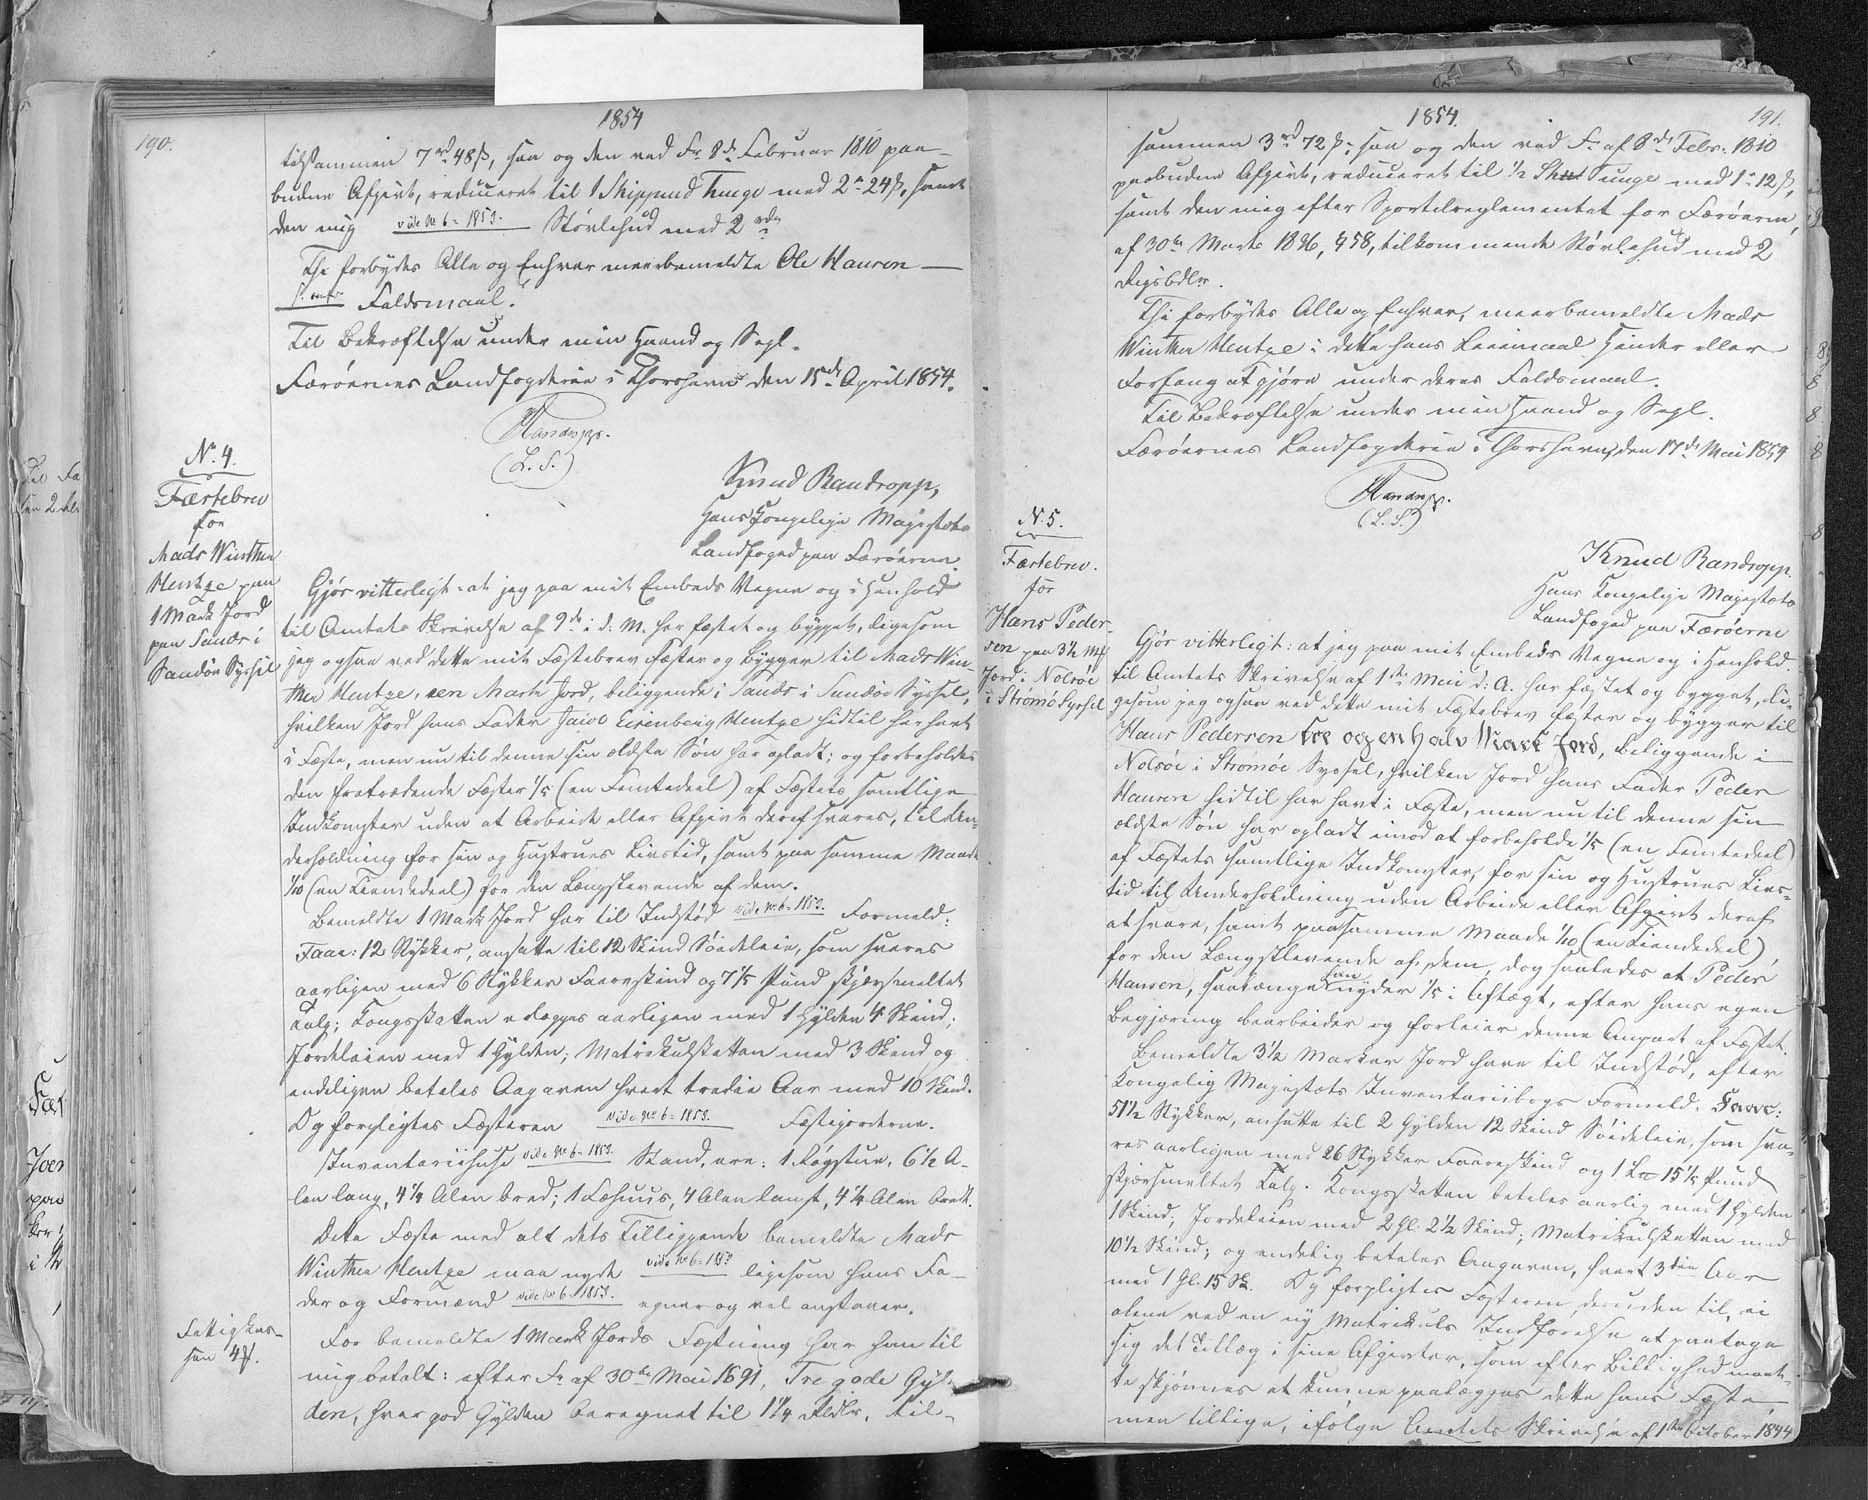 190.
1854
tilsammen 7 rd 48 ß, saa og den ved Fr. 8de Februar 1810 paa-
budne Afgivt, reduceret til 1 Skippund Tunge med 2 rd 24 ß, samt
den mig vide No 6 - 1853. Støvlehud med 2 rdr.
Thi forbydes Alle og Enhver meerbemeldte Ole Hansen
Faldsmaal.
Til Bekræftelse under min Haand og Segl.
Færöernes Landfogderie i Thorshavn den 15de April 1854.
Randropp.
(L. S.)
No. 4.
Fæstebrev
for
Mads Winther
Hentze paa
1 Mark Jord
paa Sands i
Sandöe Syssel
Knud Randropp,
Hans Kongelige Majestæts
Landfoged paa Færöerne.
Gjör vitterligt: at jeg paa mit Embeds Vegne og i Henhold
til Amtets Skrivelse af 9de i d: M. har fæstet og bygget, ligesom
jeg ogsaa ved dette mit Fæstebrev fæster og bygger til Mads Win-
ther Hentze, een Mark Jord, beliggende i Sands i Sandöe Syssel,
hvilken Jord hans Fader Jacob Eisenberg Hentze hidtil har havt
i Fæste, men nu til denne sin ældste Sön har opladt; og forbeholdes
den fratrædende Fæster 1/5 (en Femtedeel) af Fæstets samtlige
Indkomster uden at Arbeide eller Afgivt deraf svares, til Un-
derholdning for sin og Hustrues Livstid, samt paa samme Maade
1/10 (en Tiendedeel) for den Længstlevende af dem.
Bemeldte 1 Mark Jord har til Indstöd vide No 6 - 1853. Formeld:
Faar: 12 Stykker, ansatte til 12 Skind Söideleie, som svares
aarligen med 6 Stykker Faareskind og 7 1/5 Pund skjærsmeltet
Talg; Kongsskatten erlægges aarligen med 1 Gylden 4 Skind;
Jordeleien med 1 Gylden; Matrikulskatten med 3 Skind og
endeligen betales Aagaven hvert tredie Aar med 10 Skind.
Og forpligtes Fæsteren vide No 6 - 1853. Fæstejorderne.
Inventariihuse vide No 6 - 1853. Stand, ere: 1 Rögstue, 6 1/2 A-
len lang, 4 1/4 Alen bred; 1 Fæhuus, 4 Alen langt, 4 1/4 Alen bredt.
Dette Fæste med alt dets Tilliggende bemeldte Mads
Winther Hentze maa nyde vide No 6 - 1853 ligesom hans Fa-
der og Formænd vide No 6 - 1853. egner og vel anstaaer.
Fattigkas-
sen 4 ß.
For bemeldte 1 Mark Jords Fæstning har han til
mig betalt: efter Fr. af 30te Mai 1691, Tre gode Gyl-
den, hver god Gylden beregnet til 1 1/4 Rdlr, til-
1854.
191.
sammen 3 rd 72 ß; saa og den ved Fr. af 8de Febr. 1810
paabudne Afgivt, reduceret til 1/2 Tunge med 1 rd 12 ß,
samt den mig efter Sportelreglementet for Færöerne,
af 30te Marts 1836, § 58, tilkommende Støvlehud med 2
Rigsbdlr.
Thi forbydes Alle og Enhver, meerbemeldte Mads
Winther Hentze i dette hans Leiemaal Hinder eller
Forfang at gjöre under deres Faldsmaal.
Til Bekræftelse under min Haand og Segl.
Færöernes Landfogderie i Thorshavn, den 17de Mai 1854
Randropp.
(L. S.)
No. 5.
Fæstebrev.
for
Hans Peder-
sen paa 3 1/2 Mk
Jord i Nolsöe
i Strömö Syssel
Knud Randropp.
Hans Kongelige Majestæts
Landfoged paa Færöerne
Gjör vitterligt: at jeg paa mit Embeds Vegne og i Henhold
til Amtets Skrivelse af 1ste Mai d: A. har fæstet og bygget, li-
gesom jeg ogsaa ved dette mit Fæstebrev fæster og bygger til
Hans Pedersen tre og en halv Mark Jord, beliggende i
Nolsöe i Strömöe Syssel, hvilken Jord hans Fader Peder
Hansen hidtil har havt i Fæste, men nu til denne sin
ældste Sön har opladt imod at forbeholde 1/5 (en Femtedeel)
af Fæstets samtlige Indkomster, for sin og Hustrues Livs-
tid til Underholdning uden Arbeide eller Afgivt deraf
at svare, samt paa samme Maade 1/10 (en Tiendedeel)
for den Længstlevende af dem, dog saaledes at Peder
Hansen, saalænge han nyder 1/5 i Aftægt, efter hans egen
Begjæring bearbeider og forleier denne Anpart af Fæstet.
Bemeldte 3 1/2 Marker Jord have til Indstöd, efter
Kongelig Majestæts Inventariibogs Formeld. Faar:
51 1/2 Stykker, ansatte til 2 Gylden 12 Skind Söideleie, som sva-
res aarligen med 26 Stykker Faareskind og 1 L 15 1/5 Pund
skjærsmeltet Talg. Kongsskatten betales aarlig med 1 Gylden
1 Skind; Jordeleien med 2 Gl: 2 1/2 Skind; Matrikulskatten med
10 1/2 Skind; og endelig betales Aagaven, hvert 3die Aar
med 1 Gl. 15 Sk. Og forpligtes Fæsteren desuden til, ei
alene ved en ny Matrikuls Indförelse at paatage
sig det Tillæg i sine Afgivter, som efter Billighed maat-
te skjönnes at kunne paalægges dette hans Fæste
men tillige, ifölge Amtets Skrivelse af 1ste October 1844